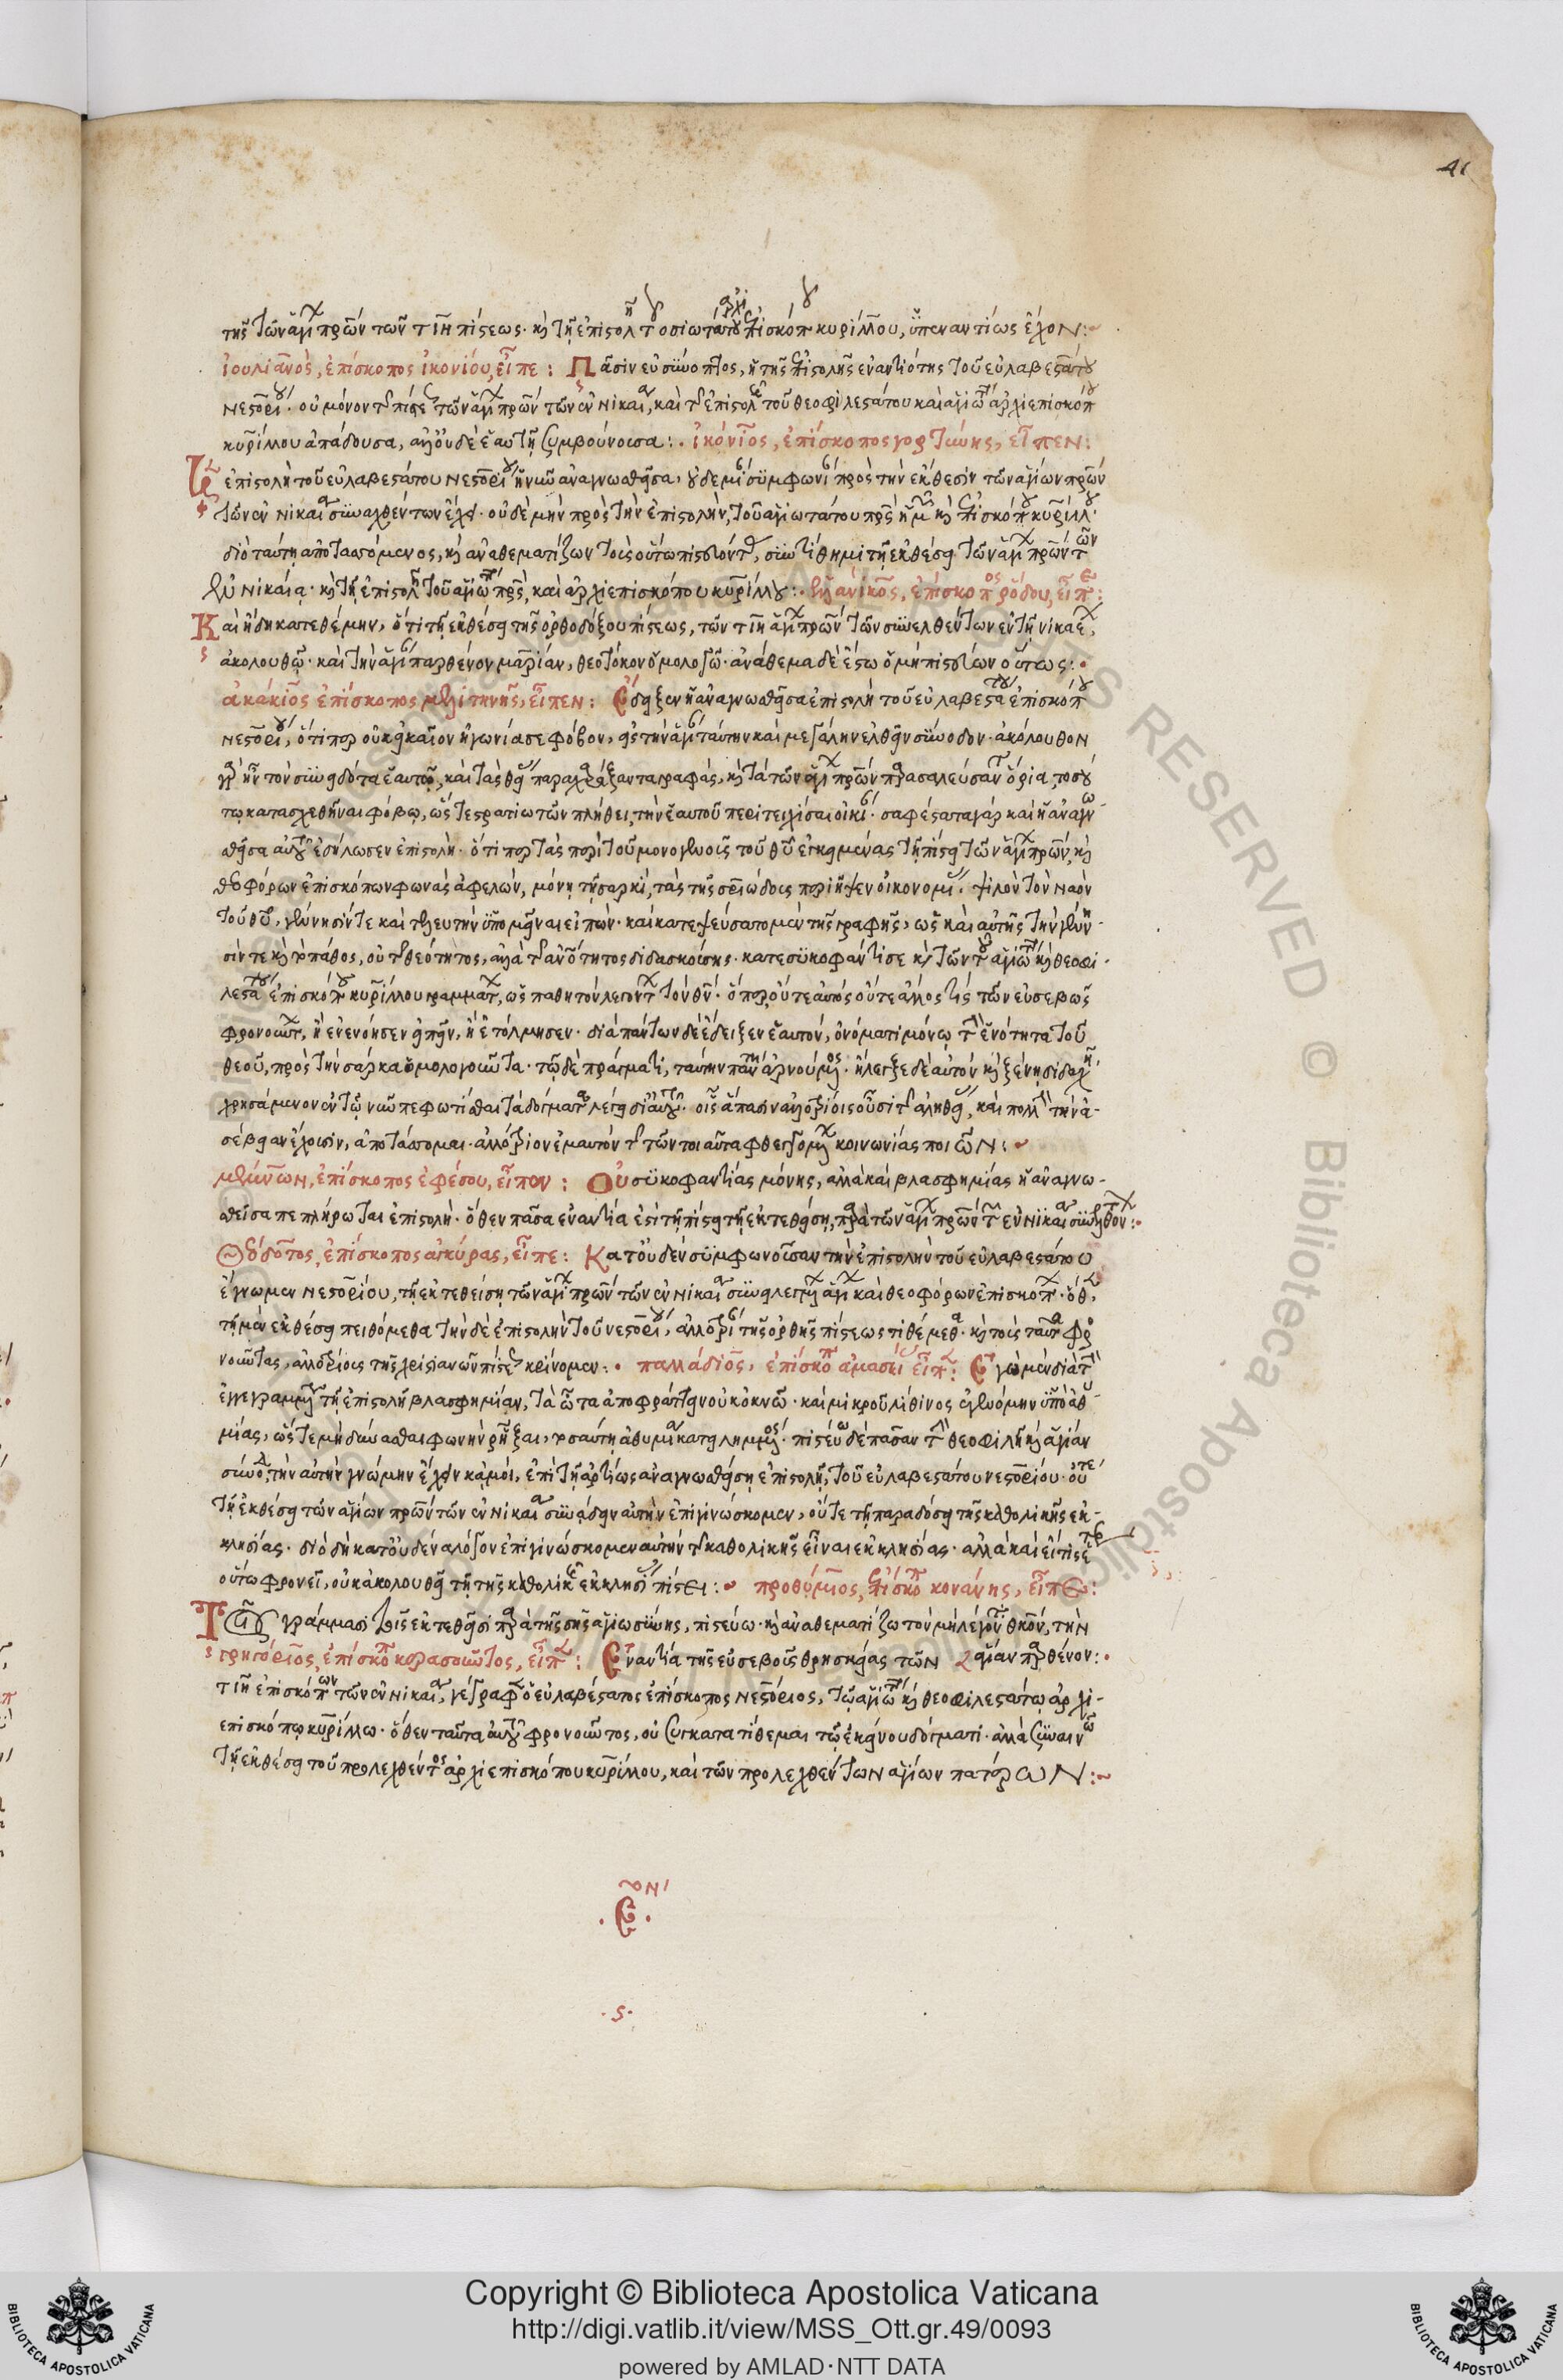 41
τῆς τῶν ἁγί πρῶν τῶν τιη πίστεως· κ τῇ ἐπιστολ τ ὁσιωτάτου ἀρχιεπισκόπ κυρίλλου, ὑπεναντίως ἔχον:
ἰουλιανὸς, ἐπίσκοπος ἰκονίου, εἶπε: Πᾶσιν εὐσύνοπτος, ἡ τῆς ἐπιστολῆς ἐναντιότης τοῦ εὐλαβεστάτου
νεστορίου· οὐ μόνον τ πίστε τῶν ἁγί πρῶν τῶν ἐν νικαί, καὶ τ ἐπιστολ τοῦ θεοφιλεστάτου καὶ ἁγιωτ ἀρχιεπισκόπου
κυρίλλου ἀπάδουσα, ἀλλ' οὐδὲ ἑαυτῇ συμβαίνουσα: ἐπίσκοπος γορτύνης, εἶπεν:
ἐπιστολὴ τοῦ εὐλαβεστάτου νεστορίου ἡ νῦν ἀναγνωσθεῖσα, οὐδεμί συμφωνί πρὸς τὴν ἔκθεσιν τῶν ἁγίων πρῶν
τῶν ἐν νικαία συναχθέντων ἔχει· οὐδὲ μὴν πρὸς τὴν ἐπιστολὴν, τοῦ ἁγιωτάτου πρς ἡμ κ ἐπισκόπου κυρίλλ·
διὸ ταύτῃ ἀποτασσόμενος, κ ἀναθεματίζων τοὺς οὕτω πιστεύοντ, συντίθημι τῇ ἐκθέσει τῶν ἁγί πρῶν τῶν
ἐν νικαίᾳ· κ τῇ ἐπιστολῇ τοῦ ἁγιωτ πρς, καὶ ἀρχιεπισκόπου κυρίλλου: ἑλλανικος, ἐπίσκοπος ῥόδου, εἶπε:
Καὶ ἤδη κατεθέμην, ὅτι τῇ ἐκθέσει τῆς ὀρθοδόξου πίστεως, τῶν τιη ἁγί πρῶν τῶν συνελθόντων ἐν τῇ νικαέ,
ἀκολουθῶ· καὶ τὴν ἁγί παρθένον μαρίαν, θεοτόκον ὁμολογῶ· ἀνάθεμα δὲ ἔστω ὁ μὴ πιστεύων οὕτως:
ἀκάκιος ἐπίσκοπος μελιτηνῆς, εἶπεν: Ἔδειξεν ἡ ἀναγνωσθεῖσα ἐπιστολὴ τοῦ εὐλαβεστάτου ἐπισκόπου
νεστορίου, ὅτιπερ οὐκ εἰκαῖον ἠγωνίασε φόβον, εἰς τὴν ἁγί ταύτην καὶ μεγάλην ἐλθεῖν σύνοδον· ἀκόλουθον
γὰρ ἦν τὸν συνειδότα ἑαυτῷ, καὶ τὰς θεί παραχαράξαντα γραφὰς, κ τὰ τῶν ἁγί πρῶν παρασαλεύσαντ ὅρια, τοσού
τῳ κατασχεθῆναι φόβῳ, ὥστε στρατιωτῶν πλήθει, τὴν ἑαυτοῦ περιτειχίσαι οἰκί· σαφέστατα γὰρ καὶ ἡ ἀναγνω
σθεῖσα αὐτοῦ ἐδήλωσεν ἐπιστολὴ· ὅτιπερ τὰς περὶ τοῦ μονογενοῦς τοῦ θῦ ἐγκειμένας τῇ πίστει τῶν ἁγί πρῶν, κ
θεοφόρων ἐπισκόπων φωνὰς ἀφελὼν, μόνῃ τῇ σαρκὶ, τὰς τῆς σωτηριώδους περιῆψεν οἰκονομί. ψιλὸν τὸν ναὸν
τοῦ θῦ, γέννησίν τε καὶ τελευτὴν ὑπομεῖναι εἰπών· καὶ κατεψεύσατο μὲν τῆς γραφῆς, ὡς καὶ αὐτῆς τὴν γέννη-
σίν τε κ τὸ πάθος, οὐ τ θεότητος, ἀλλὰ τ ἀνότητος διδασκούσης· κατεσυκοφάντησε κ τῶν τοῦ ἁγιωτ κ θεοφι-
λεστάτου ἐπισκόπου κυρίλλου γραμμάτ, ὡς παθητὸν λέγοντ τὸν θν· ὅπερ οὔτε αὐτὸς οὔτε ἄλλος τὶς τῶν εὐσεβῶς
φρονούντ, ἢ ἐνενόησεν εἰπεῖν, ἢ ἐτόλμησεν· διὰ πάντων δὲ ἔδειξεν ἑαυτὸν, ὀνόματι μόνῳ τ ἑνότητα τοῦ
θεοῦ, πρὸς τὴν σάρκα ὁμολογοῦντα· τῷ δὲ πράγματι, ταύτην παντη ἀρνούμενος· ἤλεγξε δὲ αὐτὸν κ ξένῃ διδαχῇ
χρησάμενον ἐν τῷ νῦν πεφωτίσθαι τὰ δόγματα λέγει δι' αὐτοῦ· οἷς ἅπασιν ἀλλοτρίοις οὖσι τ ἀληθεί, καὶ πολλ τὴν ἀ-
σέβειαν ἔχουσιν, ἀποτάττομαι· ἀλλότριον ἐμαυτὸν τ τῶν τοιαῦτα φθεγγομ κοινωνίας ποιῶν:
μέμνων, ἐπίσκοπος ἐφέσου, εἶπεν: Οὐ συκοφαντίας μόνης, ἀλλὰ καὶ βλασφημίας ἡ ἀναγνω-
σθεῖσα πεπλήρωται ἐπιστολὴ· ὅθεν πᾶσα ἐναντία ἐστὶ τῇ πίστει τῇ ἐκτεθείσῃ, παρὰ τῶν ἁγί πρῶν τ ἐν νικαία συνελθόντ:
Θεόδοτος, ἐπίσκοπος ἀγκύρας, εἶπε: Κατ' οὐδὲν συμφωνοῦσαν τὴν ἐπιστολὴν τοῦ εὐλαβεστάτου
ἔγνωμεν νεστορίου, τῇ ἐκτεθείσῃ τῶν ἁγί πρῶν τῶν ἐν νικαία συνειλεγμ ἁγί καὶ θεοφόρων ἐπισκόπ· ὅθ,
τῇ μὲν ἐκθέσει πειθόμεθα τὴν δὲ ἐπιστολὴν τοῦ νεστορίου, ἀλλοτρί τῆς ὀρθῆς πίστεως τιθέμεθα· κ τοὺς ταῦτα φρο
νοῦντας, ἀλλοτρίους τῆς χριστιανῶν πίστε κρίνομεν: παλλάδιος, ἐπίσκοπ ἀμασεί εἶπ: Ἐγὼ μὲν διὰ τ
ἐγγεγραμμ τῇ ἐπιστολῇ βλασφημίαν, τὰ ὦτα ἀποφράττειν οὐκ ὀκνῶ· καὶ μικροῦ λίθινος ἐγενόμην ὑπὸ ἀθυ-
μίας, ὥστε μὴ δύνασθαι φωνὴν ῥῆξαι, τοσαύτῃ ἀθυμία κατειλημμένος· πιστεύω δὲ πᾶσαν τ θεοφιλῆ κ ἁγίαν
σύνοδ, τὴν αὐτὴν γνώμην ἔχειν κἀμοὶ, ἐπὶ τῇ ἀρτίως ἀναγνωσθείσῃ ἐπιστολῇ, τοῦ εὐλαβεστάτου νεστορίου· οὔτε
τῇ ἐκθέσει τῶν ἁγίων πρῶν τῶν ἐν νικαία συνᾴδειν αὐτὴν ἐπιγινώσκομεν, οὔτε τῇ παραδόσει τῆς καθολικῆς ἐκ-
κλησίας· διὸ δὴ κατ' οὐδένα λόγον ἐπιγινώσκομεν αὐτὴν τ καθολικῆς εἶναι ἐκκλησίας· ἀλλὰ καὶ εἴ τις ἕτερ
οὕτω φρονεῖ, οὐκ ἀκολουθεῖ τῇ τῆς καθολικ ἐκκλησί πίστει: προθύμιος, ἐπίσκοπ κομάνης, εἶπε:
Τοῖς γράμμασι τοῖς ἐκτεθεῖσι παρὰ τῆς σῆς ἁγιωσύνης, πιστεύω· κ ἀναθεματίζω τὸν μὴ λέγοντ θκον, τὴν
γρηγόριος, ἐπίσκοπ κερασοῦντος, εἶπ: Ἐναντία τῆς εὐσεβοῦς θρησκείας τῶν ἁγίαν παρθένον:
τιη ἐπισκόπων τῶν ἐν νικαία, γέγραφεν ὁ εὐλαβέστατος ἐπίσκοπος νεστόριος, τῷ ἁγιωτ κ θεοφιλεστάτῳ ἀρχι-
επισκόπῳ κυρίλλῳ· ὅθεν ταῦτα αὐτοῦ φρονοῦντος, οὐ συγκατατίθεμαι τῷ ἐκείνου δόγματι· ἀλλὰ συναινῶ
τῇ ἐκθέσει τοῦ προλεχθέντος ἀρχιεπισκόπου κυρίλλου, καὶ τῶν προλεχθέντων ἁγίων πατέρων:
Copyright © Biblioteca Apostolica Vaticana
http://digi.vatlib.it/view/MSS_Ott.gr.49/0093
powered by AMLAD·NTT DATA